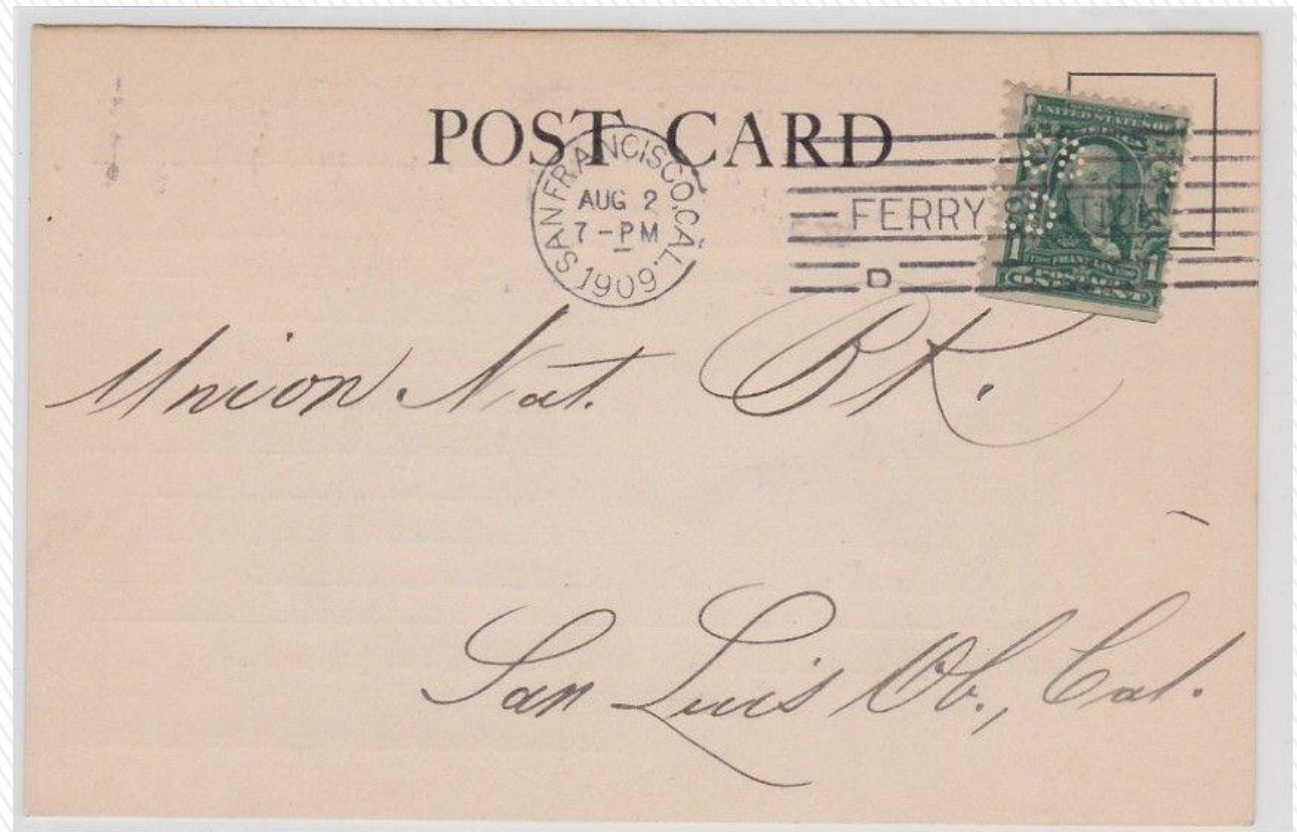 POST CARD
SAN FRANCISCO, CAL.
AUG 2
7-PM
1909
FERRY
D
UNITED STATES OF
1 1
ONE CENT
Union Nat. Bk.
San Luis Ob., Cal.